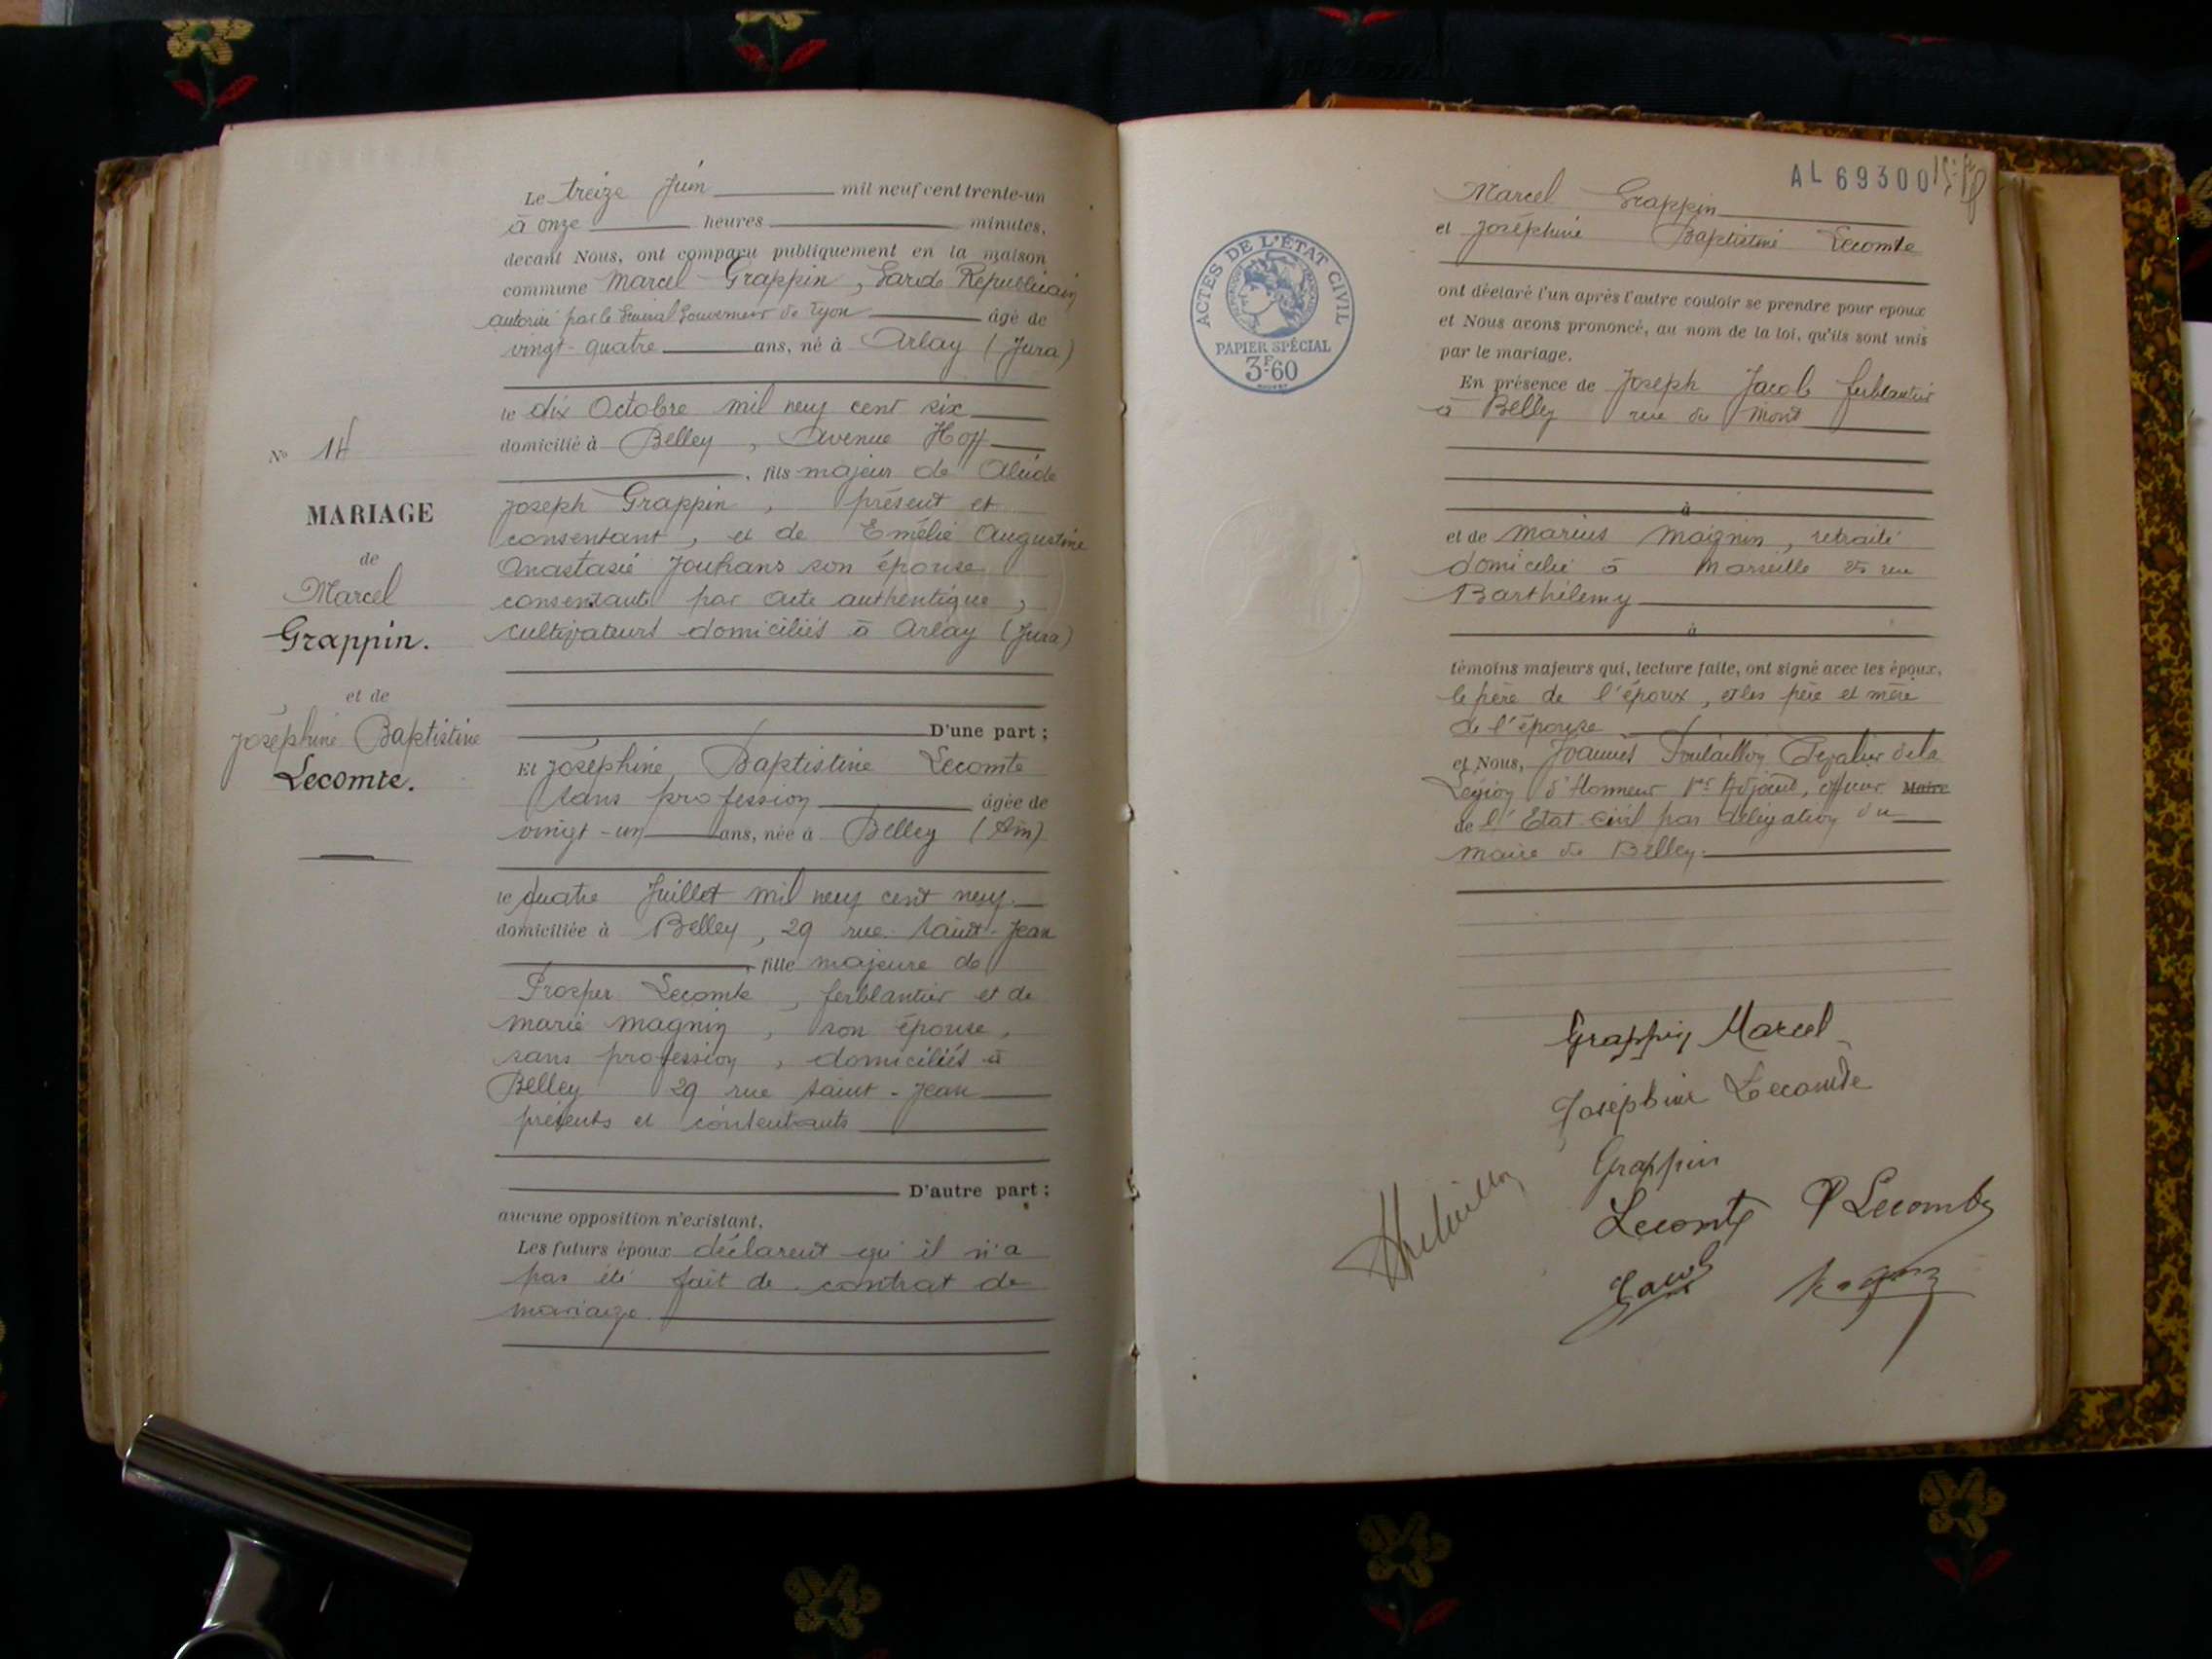 Le treize Juin mil neuf cent trente-un
à onze heures minutes,
devant Nous, ont comparu publiquement en la maison
commune Marcel Grappin, Garde Républicain
autorisé par le Général Gouverneur de Lyon âgé de
vingt-quatre ans, né à Arlay (Jura)
le dix Octobre mil neuf cent six
domicilié à Belley, Avenue Hoff
, fils majeur de Alcide
Joseph Grappin, présent et
consentant, et de Emélie Augustine
Anastasie Jouhans son épouse
consentante par acte authentique,
cultivateurs domiciliés à Arlay (Jura)
D'une part ;
Et Joséphine Baptistine Lecomte
sans profession âgée de
vingt-un ans, née à Belley (Ain)
le quatre Juillet mil neuf cent neuf
domiciliée à Belley, 29 rue Saint-Jean
, fille majeure de
Prosper Lecomte, ferblantier et de
Marie Magnin, son épouse,
sans profession, domiciliés à
Belley 29 rue Saint-Jean
présents et consentants
D'autre part ;
aucune opposition n'existant,
Les futurs époux déclarent qu'il n'a
pas été fait de contrat de
mariage.
N° 14
MARIAGE
de
Marcel
Grappin.
et de
Joséphine Baptistine
Lecomte.
AL 69300
ACTES DE L'ÉTAT CIVIL
PAPIER SPÉCIAL
3F.60
Marcel Grappin
et Joséphine Baptistine Lecomte
ont déclaré l'un après l'autre vouloir se prendre pour époux
et Nous avons prononcé, au nom de la loi, qu'ils sont unis
par le mariage.
En présence de Joseph Jacob ferblantier
à Belley rue du Mont
à
et de Marius Maignin, retraité
domicilié à Marseille 25 rue
Barthélemy
à
témoins majeurs qui, lecture faite, ont signé avec les époux,
le père de l'époux, et les père et mère
de l'épouse
et Nous, Joannès Chevalier de la
Légion d'Honneur 1er Adjoint, officier Maire
de l'Etat civil par délégation du
maire de Belley.
Grappin Marcel
Joséphine Lecomte
Grappin
Lecomte P Lecomte
Jacob